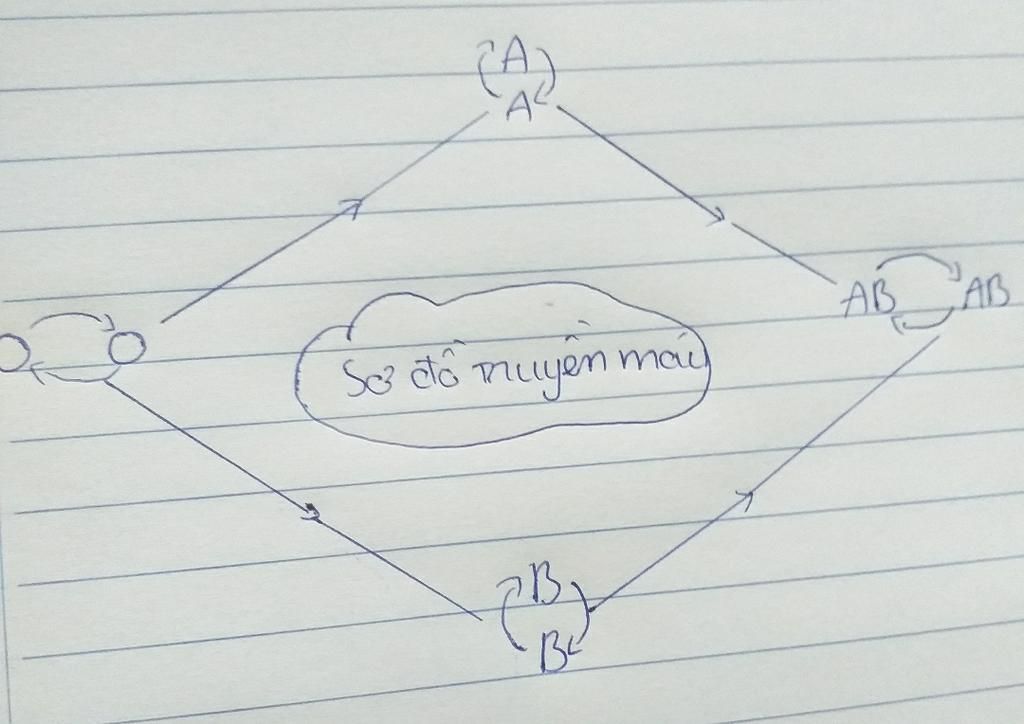 A
A
AB AB
O O
Sơ đồ truyền máu
B
B